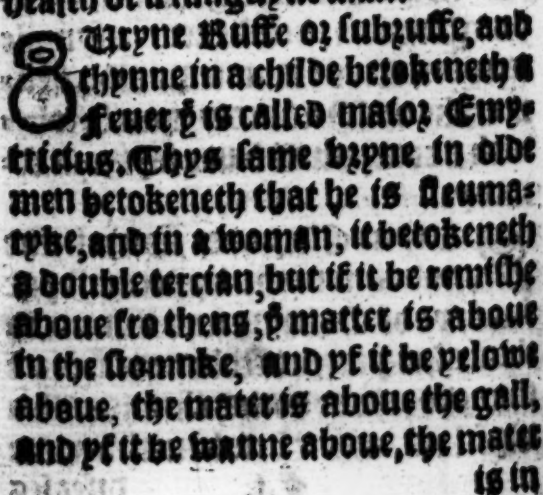 Uryne Ruffe oꝛ ſubꝛuffe, and
8 thynne in a childe betokeneth a
Feuer ẏ is called maioꝛ Emy-
trictus. Thys ſame vꝛyne in olde
men betokeneth that he is fleuma-
tyke, and in a woman, it betokeneth
a double tercian, but if it be remiſhe
aboue fro thens, ẏ matter is aboue
in the ſtomake, and yf it be yelowe
aboue, the mater is aboue the gall,
and yf it be wanne aboue, the mater
is in